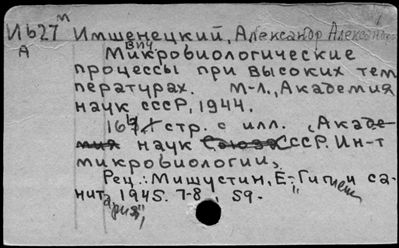 Иб27 м Имшенецкий, Александр Александ
А впу.
Микробиологические
процессы при высоких тем
пературах. М-Л., Академия
наук СССР, 1944.
стр. с илл. (Акаде-
мия наук Союза СССР. Ин-т
микробиологии).
Рец.: Мишустин, Е. "Гигиен са-
нитария", 1945. 7-8, 59.